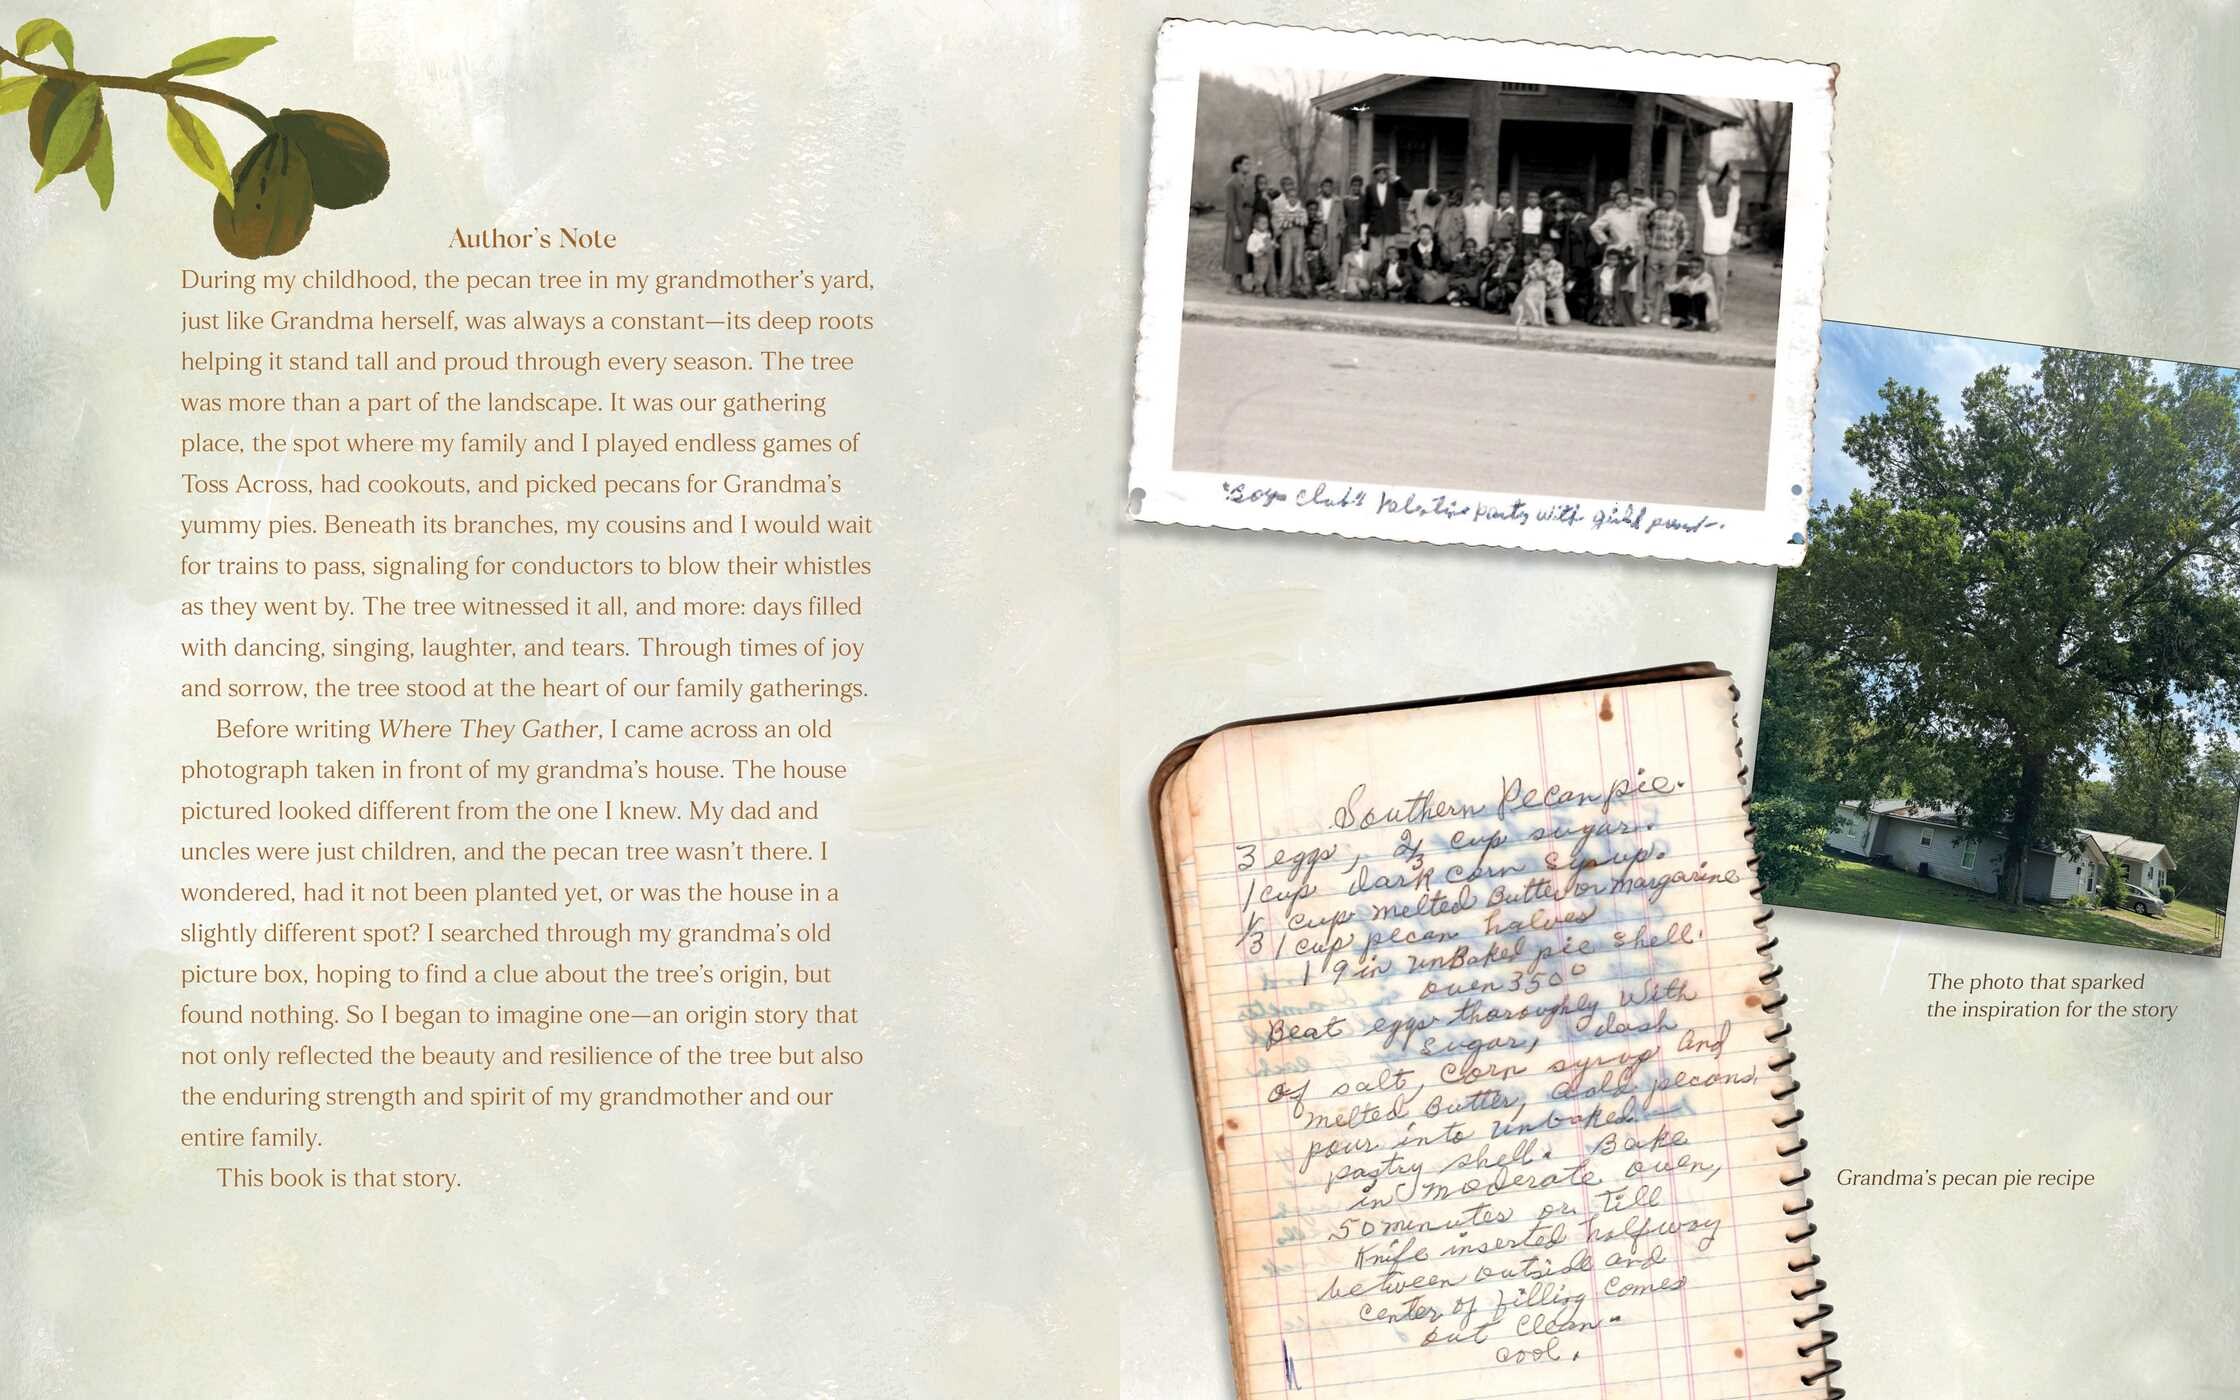 Author's Note
During my childhood, the pecan tree in my grandmother's yard,
just like Grandma herself, was always a constant—its deep roots
helping it stand tall and proud through every season. The tree
was more than a part of the landscape. It was our gathering
place, the spot where my family and I played endless games of
Toss Across, had cookouts, and picked pecans for Grandma's
yummy pies. Beneath its branches, my cousins and I would wait
for trains to pass, signaling for conductors to blow their whistles
as they went by. The tree witnessed it all, and more: days filled
with dancing, singing, laughter, and tears. Through times of joy
and sorrow, the tree stood at the heart of our family gatherings.
Before writing Where They Gather, I came across an old
photograph taken in front of my grandma's house. The house
pictured looked different from the one I knew. My dad and
uncles were just children, and the pecan tree wasn't there. I
wondered, had it not been planted yet, or was the house in a
slightly different spot? I searched through my grandma's old
picture box, hoping to find a clue about the tree's origin, but
found nothing. So I began to imagine one—an origin story that
not only reflected the beauty and resilience of the tree but also
the enduring strength and spirit of my grandmother and our
entire family.
This book is that story.
"Boys Club" Valentine party with girls
The photo that sparked
the inspiration for the story
Southern Pecan pie.
3 eggs, 2/3 cup sugar.
1 cup dark corn syrup.
1/3 cup melted Butter or margarine
1 cup pecan halves
1 9 in unBaked pie shell.
oven 350°
Beat eggs thoroughly with
sugar, dash
of salt, corn syrup and
melted Butter, add pecans,
pour into unbaked
pastry shell. Bake
in moderate oven,
50 minutes or till
Knife inserted halfway
between outside and
center of filling comes
out clean-
cool.
Grandma's pecan pie recipe